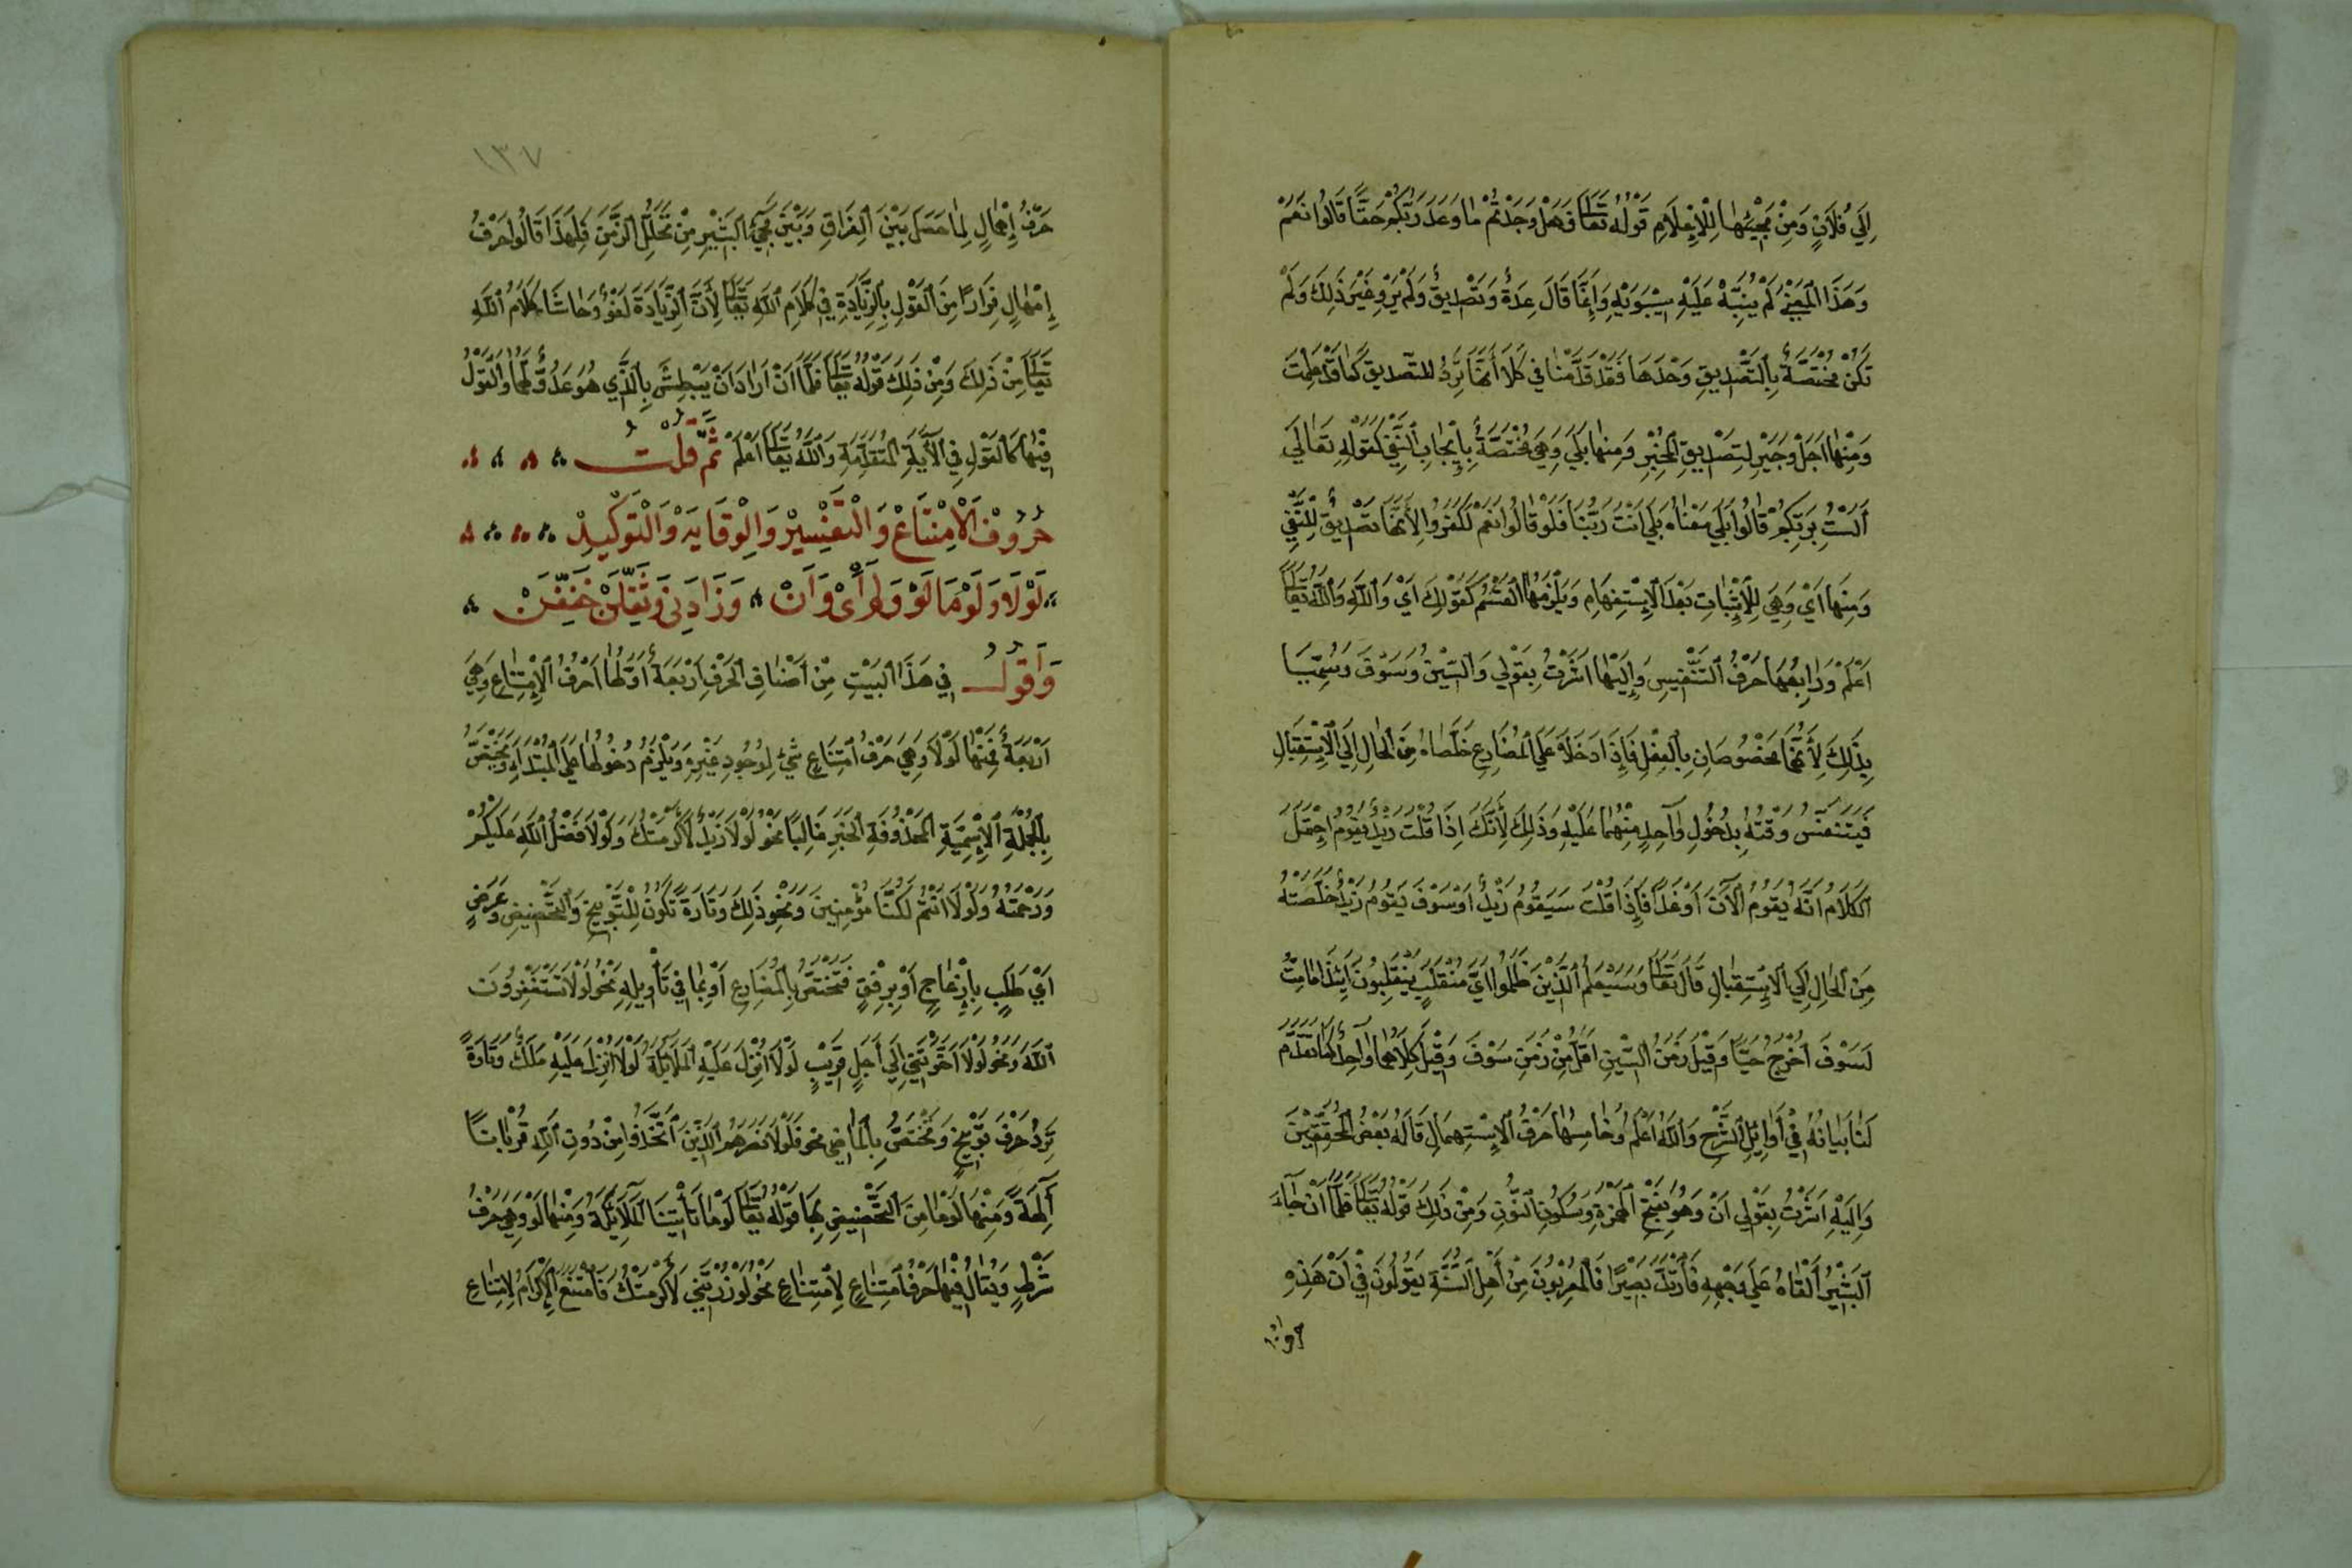 إِلَى فُلَانٍ وَمِنْ مَجِيْئِهَا لِلْإِعْلَامِ قَوْلُهُ تَعَالَى فَهَلْ وَجَدْتُمْ مَا وَعَدَ رَبُّكُمْ حَقًّا قَالُوا نَعَمْ
وَهَذَا الْمَعْنَى لَمْ يُنَبِّهْ عَلَيْهِ سِيْبَوَيْهِ وَإِنَّمَا قَالَ عِدَةٌ وَتَصْدِيقٌ وَلَمْ يَرْوِ غَيْرَ ذَلِكَ وَلَمْ
تَكُنْ مُخْتَصَّةً بِالتَّصْدِيقِ وَحْدَهَا فَقَدْ قَدَّمْنَا فِي كَلَّا أَنَّهَا تَرِدُ للتَّصديق كَمَا قَدْ عَلِمْتَ
وَمِنْهَا أَجَلْ وَجَيْرِ لِتَصْدِيقِ الْمُخْبِرِ وَمِنهَا بَلَى وَهِيَ مُخْتَصَّةٌ بِإِيْجَابِ النَّفْيِ كَقَوْلِهِ تَعَالَى
أَلَسْتُ بِرَبِّكُمْ قَالُوا بَلَى مَعْنَاهُ بَلَى أَنْتَ رَبُّنَا فَلَوْ قَالُوا نَعَمْ لَكَفَرُوا لِأَنَّهَا تَصْدِيقٌ لِلنَّفْيِ
وَمِنهَا أَيْ وَهِيَ لِلْإِثْبَاتِ بَعْدَ الْإِسْتِفْهَامِ وَيَلْزَمُهَا الْقَسَمُ كَقَوْلِكَ أَيْ وَاللهِ وَاللهُ تَعَالَى
أَعْلَمْ وَرَابِعُهَا حَرْفُ التَّنْفِيسِ وَإِلَيْهَا أَشَرْتُ بِقَوْلِي وَالسِّيْنُ وَسَوْفَ وَسُمِّيَا
بِذَلِكَ لِأَنَّهُمَا مَخْصُوصَانِ بِالْفِعْلِ فَإِذَا دَخَلَا عَلَى الْمُضَارِعِ خَلَّصَاهُ مِنَ الْحَالِ إِلَى الْإِسْتِقْبَالِ
فَيَتَنَفَّسُ وَقْتُهُ بِدُخُولِ وَاحِدٍ مِنْهُمَا عَلَيْهِ وَذَلِكَ لِأَنَّكَ إِذَا قُلْتَ زَيْدٌ يَقُومُ اِحْتَمَلَ
الْكَلَامُ أَنَّهُ يَقُومُ الْآنَ أَوْ غَدًا فَإِذَا قُلْتَ سَيَقُومُ زَيْدٌ أَوْ سَوْفَ يَقُومُ زَيْدٌ خَلَّصْتَهُ
مِنَ الْحَالِ إِلَى الْإِسْتِقْبَالِ قَالَ تَعَالَى وَسَيَعْلَمُ الَّذِيْنَ ظَلَمُوا أَيَّ مُنْقَلَبٍ يَنْقَلِبُونَ أَئِذَا مَا مِتُّ
لَسَوْفَ أُخْرَجُ حَيًّا وَقِيْلَ زَمَنُ السِّيْنِ أَقَلُّ مِنْ زَمَنِ سَوْفَ وَقِيْلَ كِلَاهُمَا وَاحِدٌ كَمَا تَقَدَّمَ
لَنَا بَيَانُهُ فِي أَوَائِلِ الشَّرْحِ وَاللهُ أَعْلَمُ وَخَامِسُهَا حَرْفُ الْإِسْتِمْهَالِ قَالَهُ بَعْضُ الْمُحَقِّقِيْنَ
وَإِلَيْهِ أَشَرْتُ بِقَوْلِي أَنْ وَهُوَ بِفَتْحِ الْهَمْزَةِ وَسُكُونِ النُّونِ وَمِنْ ذَلِكَ قَوْلُهُ تَعَالَى فَلَمَّا أَنْ جَاءَ
الْبَشِيْرُ أَلْقَاهُ عَلَى وَجْهِهِ فَارْتَدَّ بَصِيْرًا فَالْمُعْرِبُونَ مِنْ أَهْلِ السُّنَّةِ يَقُولُونَ فِي أَنْ هَذِهِ
١٣٧
حَرْفُ إِمْهَالٍ لِمَا حَصَلَ بَيْنَ الْفِرَاقِ وَبَيْنَ مَجِيْءِ الْبَشِيْرِ مِنْ تَخَلُّلِ الزَّمَنِ فَلِهَذَا قَالُوا حَرْفُ
إِمْهَالٍ فِرَارًا مِنَ الْقَوْلِ بِالزِّيَادَةِ فِي كَلَامِ اللهِ تَعَالَى لِأَنَّ الزِّيَادَةَ لَغْوٌ وَحَاشَا كَلَامُ اللهِ
تَعَالَى مِنْ ذَلِكَ وَمِنْ ذَلِكَ قَوْلُهُ تَعَالَى فَلَمَّا أَنْ أَرَادَ أَنْ يَبْطِشَ بِالَّذِي هُوَ عَدُوٌّ لَهُمَا وَالْقَوْلُ
فِيْهَا كَالْقَوْلِ فِي الْآيَةِ الْمُتَقَدِّمَةِ وَاللهُ تَعَالَى أَعْلَمْ ثُمَّ قُلْتُ
حُرُوْفُ الْاِمْتِنَاعْ وَالتَّفْسِيْرْ وَالْوِقَايَهْ وَالتَّوْكِيْدْ
لَوْلَا وَلَوْمَا لَوْ وَلَمَّا أَيْ وَأَنْ وَزَادَنِي وَثَقِّلَنْ خَفِّفَنْ
وَأَقُولُ فِي هَذَا الْبَيْتِ مِنْ أَصْنَافِ الْحَرْفِ أَرْبَعَةٌ أَوَّلُهَا أَحْرُفُ الْإِمْتِنَاعِ وَهِيَ
أَرْبَعَةٌ فَمِنْهَا لَوْلَا وَهِيَ حَرْفُ امْتِنَاعِ شَيْءٍ لِوُجُودِ غَيْرِهِ وَيَلْزَمُ دُخُولُهَا عَلَى الْمُبْتَدَاءِ وَتَخْتَصُّ
بِالْجُمْلَةِ الْإِسْمِيَّةِ الْمَحْذُوفَةِ الْخَبَرِ غَالِبًا نَحْوُ لَوْلَا زَيْدٌ لَأَكْرَمْتُكَ وَلَوْلَا فَضْلُ اللهِ عَلَيْكُمْ
وَرَحْمَتُهُ وَلَوْلَا أَنْتُمْ لَكُنَّا مُؤْمِنِينَ وَنَحْوِ ذَلِكَ وَتَارَةً تَكُونُ لِلتَّوْبِيخِ وَالتَّحْضِيضِ وَعَرَضٍ
أَيْ طَلَبٍ بِإِزْعَاجٍ أَوْ بِرِفْقٍ فَتَخْتَصُّ بِالْمُضَارِعِ أَوْ بِمَا فِي تَأْوِيلِهِ نَحْوُ لَوْلَا تَسْتَغْفِرُونَ
اللهَ وَنَحْوُ لَوْلَا أَخَّرْتَنِي إِلَى أَجَلٍ قَرِيْبٍ لَوْلَا أُنْزِلَ عَلَيْهِ الْمَلَائِكَةُ لَوْلَا أُنْزِلَ عَلَيْهِ مَلَكٌ وَتَارَةً
تَرِدُ حَرْفَ تَوْبِيْخٍ وَتَخْتَصُّ بِالْمَاضِي نحو فَلَوْلَا نَصَرَهُمُ الَّذِيْنَ اتَّخَذُوا مِنْ دُونِ اللهِ قُرْبَانًا
آلِهَةً وَمِنْهَا لَوْمَا مِنَ التَّحْضِيضِ بِهَا قَوْلُهُ تَعَالَى لَوْمَا تَأْتِيْنَا بِالْمَلَائِكَةِ وَمِنْهَا لَوْ وَهِيَ حَرْفُ
شَرْطٍ وَيُقَالُ فِيْهَا حَرْفُ امْتِنَاعٍ لِامْتِنَاعٍ نَحْوُ لَوْ زُرْتَنِي لَأَكْرَمْتُكَ فَامْتَنَعَ الْإِكْرَامُ لِامْتِنَاعِ